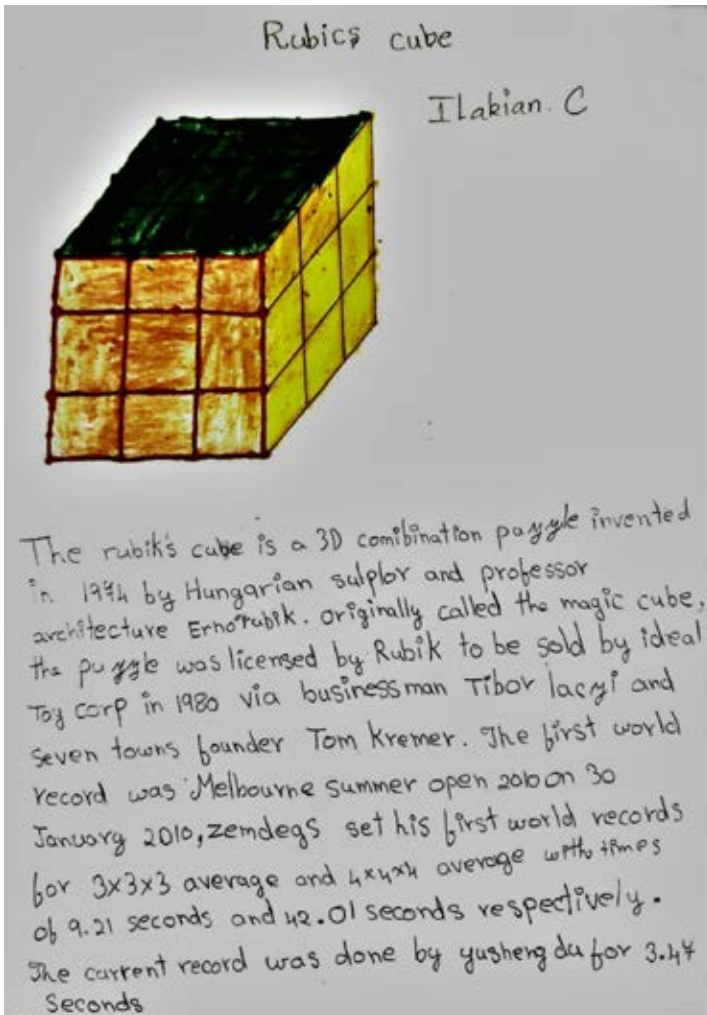 Rubics cube
Ilakian. C
The rubik's cube is a 3D comibination puzzle invented
in 1974 by Hungarian sulplor and professor
architecture Erno rubik. originally called the magic cube,
the puzzle was licensed by Rubik to be sold by ideal
Toy corp in 1980 via businessman Tibor laczi and
seven towns founder Tom Kremer. The first world
record was Melbourne summer open 2010 on 30
January 2010, zemdegs set his first world records
for 3x3x3 average and 4x4x4 average with times
of 9.21 seconds and 42.01 seconds respectively.
The current record was done by yusheng du for 3.47
Seconds